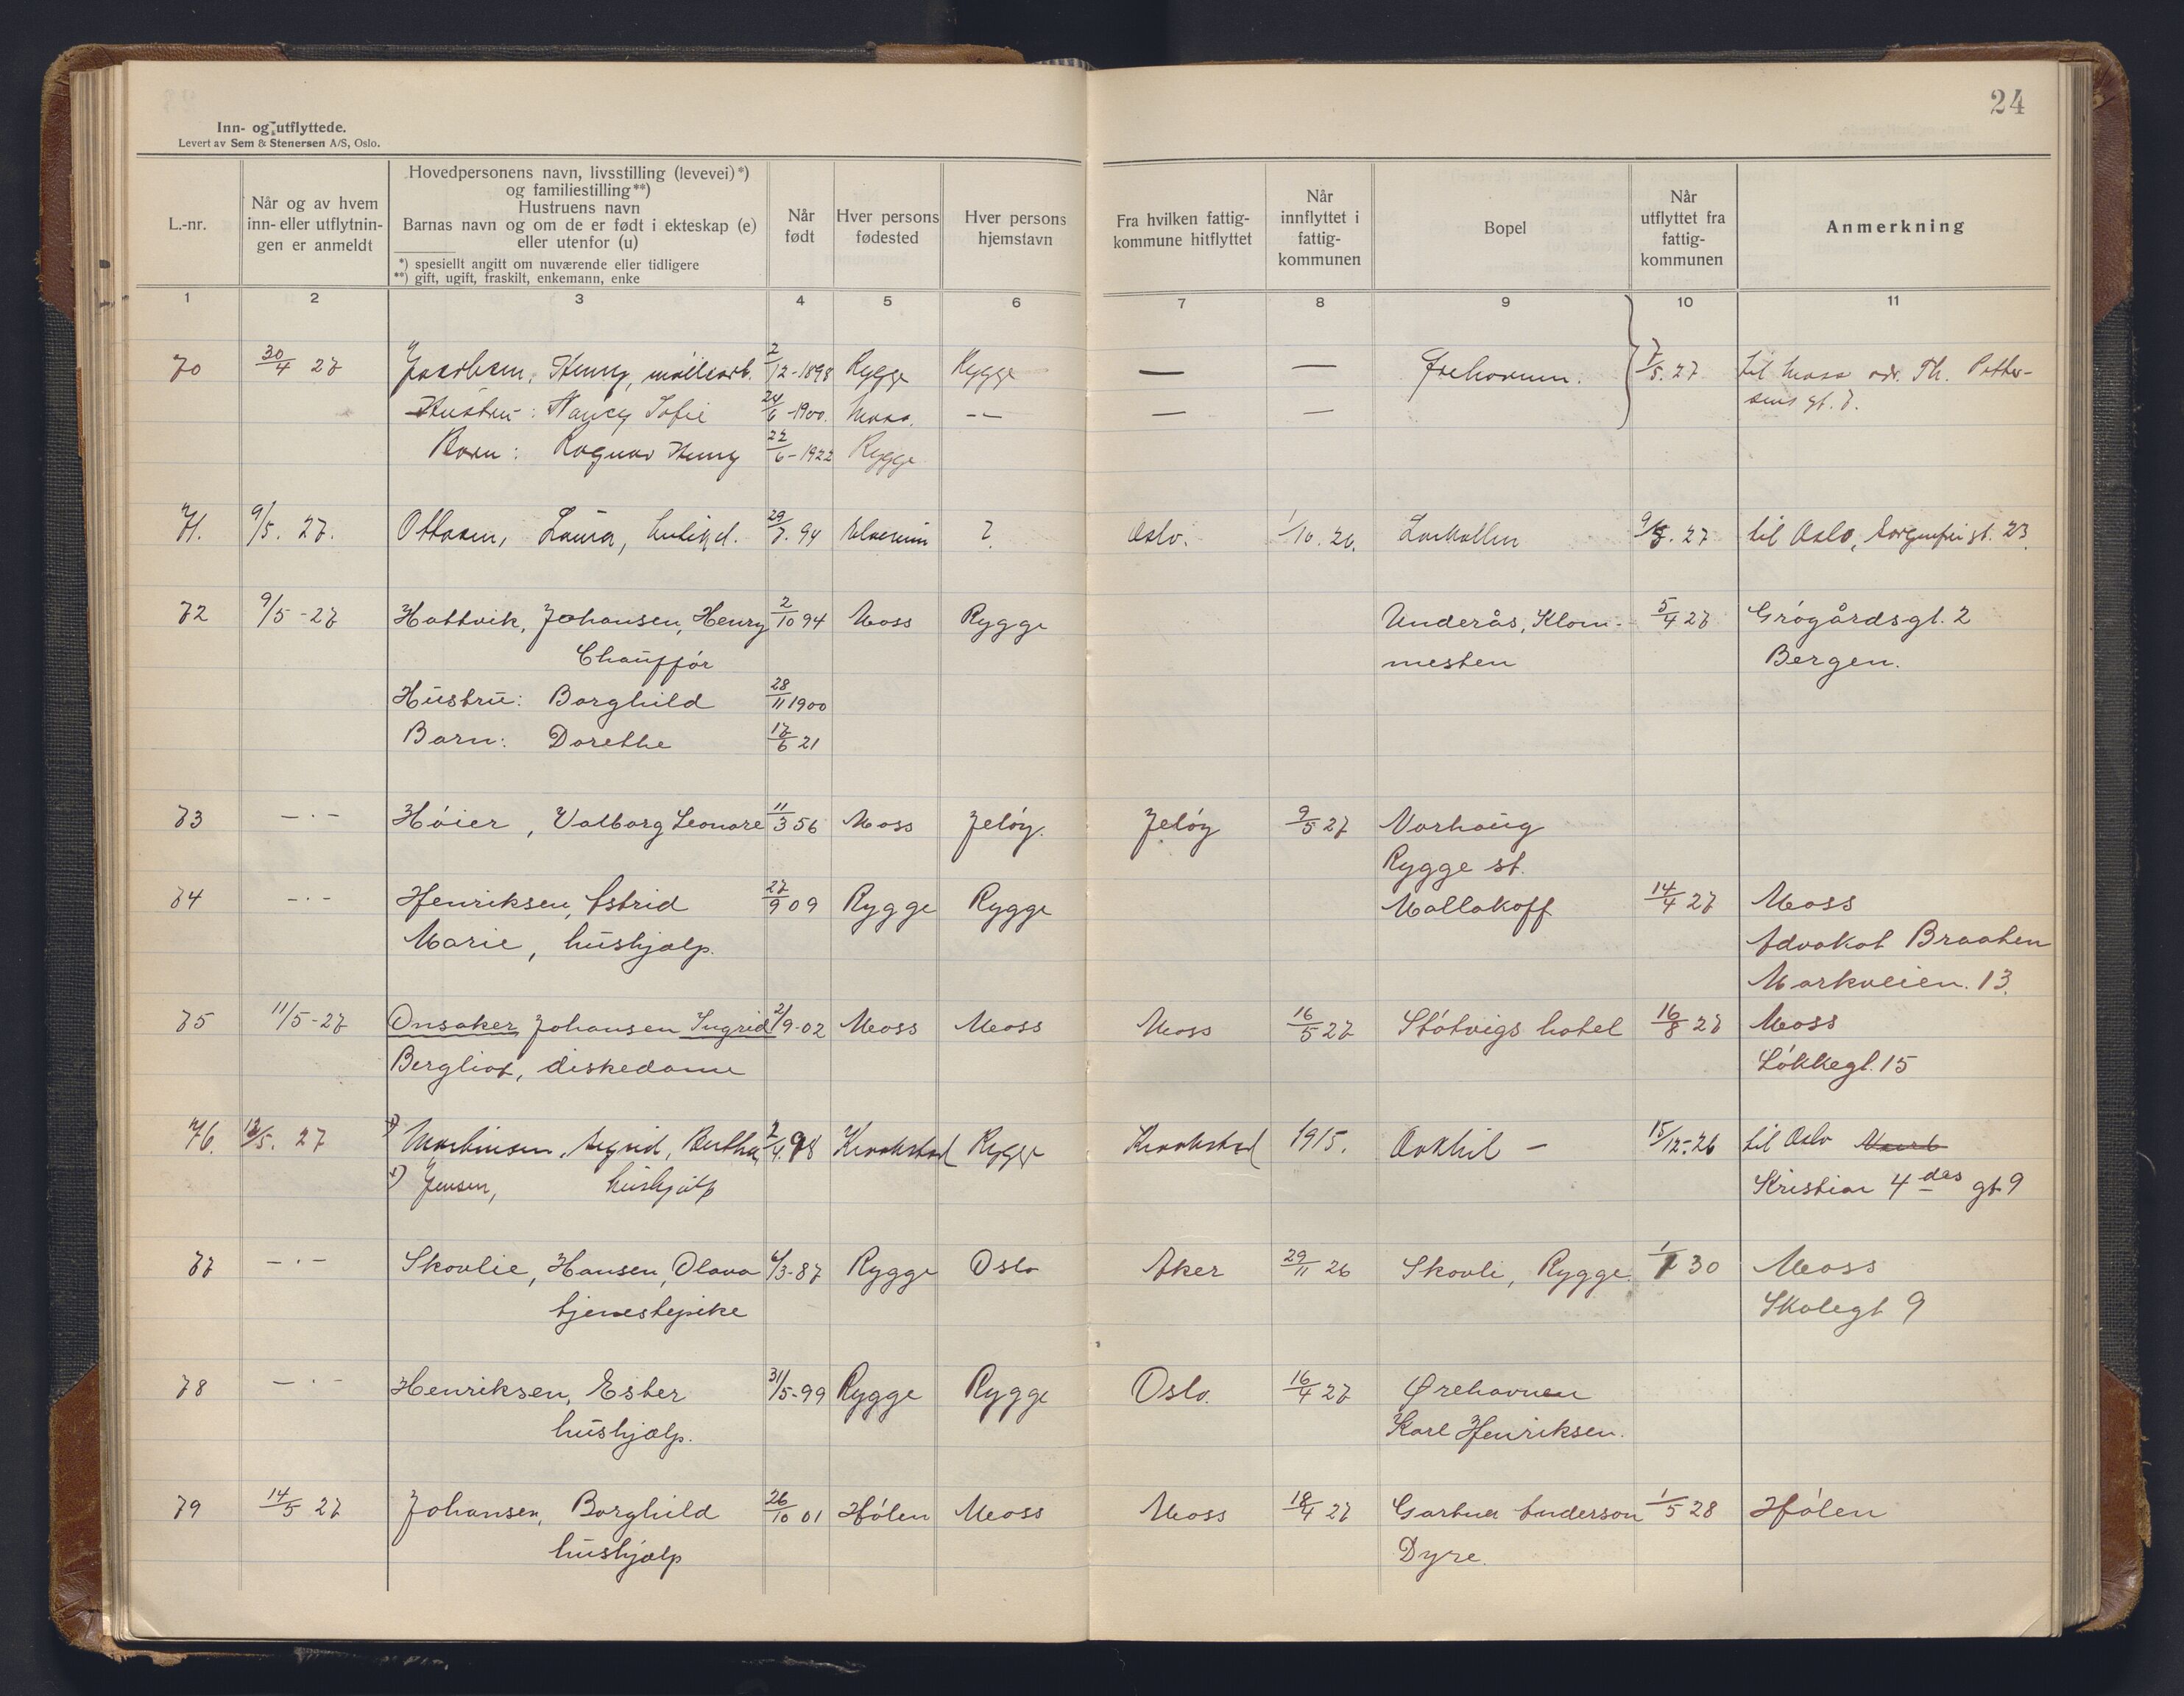 24
Inn- og utflyttede.
Levert av Sem & Stenersen A/S, Oslo.
L.-nr.
Når og av hvem inn- eller utflytningen er anmeldt
Hovedpersonens navn, livsstilling (levevei)*)
og familiestilling**)
Hustruens navn
Barnas navn og om de er født i ekteskap (e)
eller utenfor (u)
*) spesiellt angitt om nuværende eller tidligere
**) gift, ugift, fraskilt, enkemann, enke
Når født
Hver persons fødested
Hver persons hjemstavn
Fra hvilken fattigkommune hitflyttet
Når innflyttet i fattigkommunen
Bopel
Når utflyttet fra fattigkommunen
Anmerkning
1 2 3 4 5 6 7 8 9 10 11
70 30/4 27 Jacobsen, Henry, 2/12-1898 Rygge Rygge — — 7/5.27 til Moss adr. Th. Petter-
Hustru: Nancy Sofie 24/6-1900. Moss. -- — — sens gt. 7.
Barn: Ragnar Henry 22/6-1922 Rygge
71. 9/5. 27. Ottosen, Laura, 29/7.94 ? Oslo. 1/10.26. Larkollen 9/5.27 til Oslo, Sorgenfrigt. 23.
72 9/5-27 Hattvik, Johansen, Henry 2/10 94 Moss Rygge Underås, Klom- 5/4 27 Grógårdsgt. 2
Chaufför mesten Bergen.
Hustru: Borghild 28/11 1900
Barn: Dorethe 17/6 21
73 -·- Hóier, Valborg Leonore 11/3 56 Moss Jelóy. Jelóy 9/5 27 Varhaug
Rygge st.
74 -·- Henriksen, Astrid 27/9 09 Rygge Rygge Mallakoff 14/4 27 Moss
Marie, hushjælp. Advokat Braaten
Markveien. 13.
75 11/5-27 Onsaker, Johansen Ingrid 2/9-02 Moss Moss Moss 16/5 27 Stótvigs hotel 16/8 27 Moss
Bergliot, diskedame Lókkegt. 15
76. 13/5. 27 1) Martinsen, Sigrid, Berthea 2/4.98 Kraakstad Rygge Kraakstad 1915. 15/12-26 til Oslo
1) Jensen, hushjælp Kristian 4des gt 9
77 -·- Skovlie, Hansen, Olava 6/3-87 Rygge Oslo Aker 29/11 26 Skovli, Rygge. 1/1 30 Moss
tjenestepike Skolegt 9
78 -·- Henriksen, Ester 31/5-99 Rygge Rygge Oslo. 16/4 27 Ørehavnen
hushjælp. Karl Henriksen.
79 14/5 27 Johansen, Borghild 26/10 01 Hólen Moss Moss 18/4 27 Gartner Anderson 1/5 28 Hólen
hushjælp Dyre.